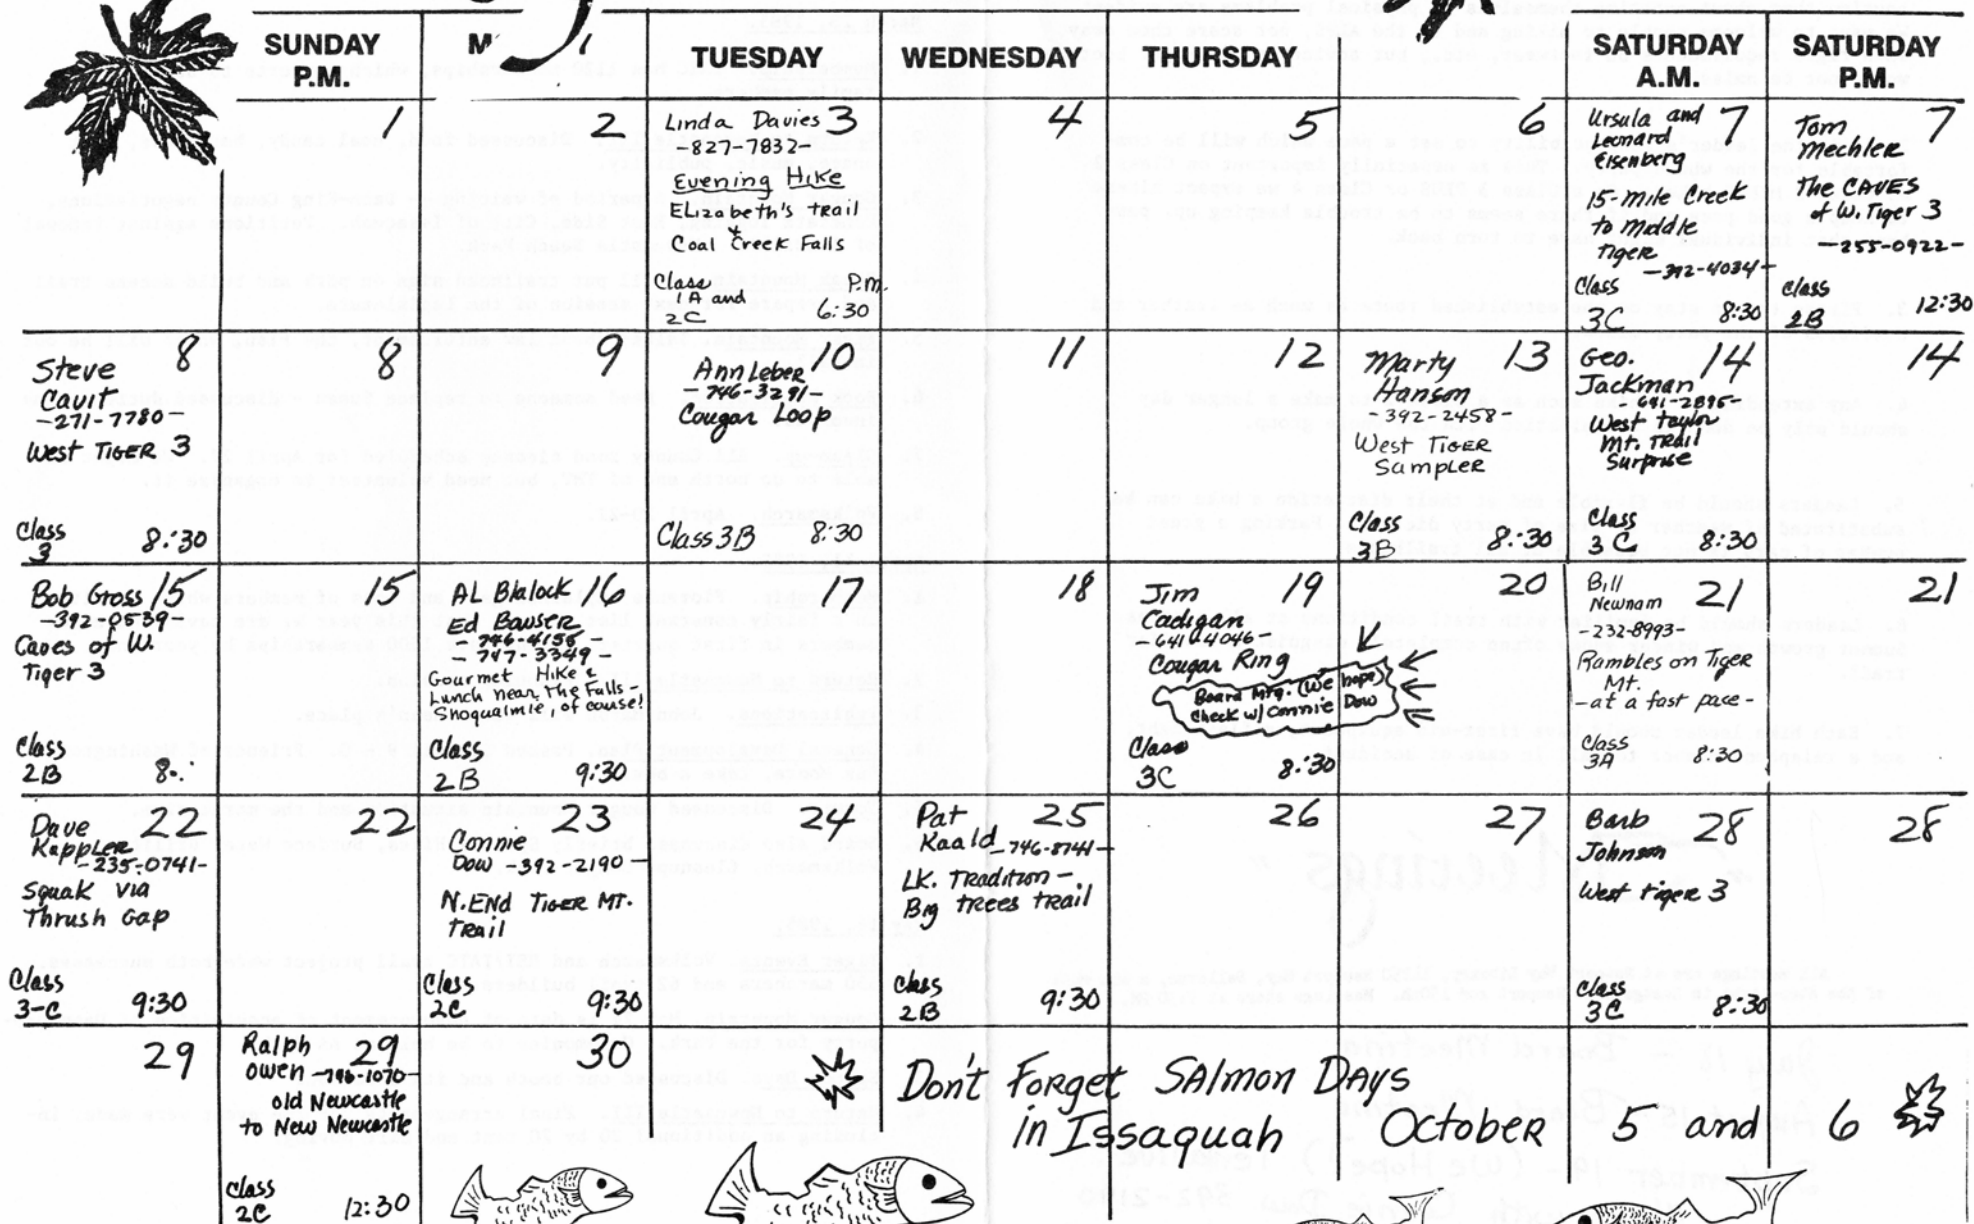 SUNDAY
P.M.
TUESDAY
WEDNESDAY
THURSDAY
SATURDAY
A.M.
SATURDAY
P.M.
1
2
Linda Davies 3
-827-7832-
Evening Hike
Elizabeth's trail
&
Coal Creek Falls
Class P.m.
1A and
2C 6:30
4
5
6
Ursula and 7
Leonard
Eisenberg
15-mile Creek
to middle
Tiger
-392-4034-
Class
3C 8:30
Tom 7
Mechler
The CAVES
of W. Tiger 3
-255-0922-
Class
2B 12:30
Steve 8
Cavit
-271-7780-
West TIGER 3
Class
3 8:30
8
9
Ann Leber 10
-746-3291-
Cougar Loop
Class 3B 8:30
11
12
Marty 13
Hanson
-392-2458-
West TIGER
Sampler
Class
3B 8:30
Geo. 14
Jackman
-641-2895-
West Taylor
Mt. TRAIL
Surprise
Class
3C 8:30
14
Bob Gross 15
-392-0539-
Caves of W.
Tiger 3
Class
2B 8:
15
AL Blalock 16
Ed Bauser
-746-4155-
-747-3349-
Gourmet Hike &
Lunch near the Falls-
Snoqualmie, of cause!
Class
2B 9:30
17
18
Jim 19
Cadigan
-641-4046-
Cougar Ring
Board Mtg. (We hope)
Check w/ Connie Dow
Class
3C 8:30
20
Bill 21
Newnam
-232-8993-
Rambles on Tiger
Mt.
-at a fast pace-
Class
3A 8:30
21
Dave 22
Kappler
-235-0741-
Squak via
Thrush Gap
Class
3-C 9:30
22
Connie 23
Dow -392-2190-
N. END TIGER MT.
TRail
Class
2C 9:30
24
Pat 25
Kaald -746-8741-
LK. Tradition-
Big trees trail
Class
2B 9:30
26
27
Barb 28
Johnson
West tiger 3
Class
3C 8:30
28
29
Ralph 29
Owen -746-1070-
old Newcastle
to New Newcastle
Class
2C 12:30
30
Don't Forget Salmon Days
in Issaquah October 5 and 6